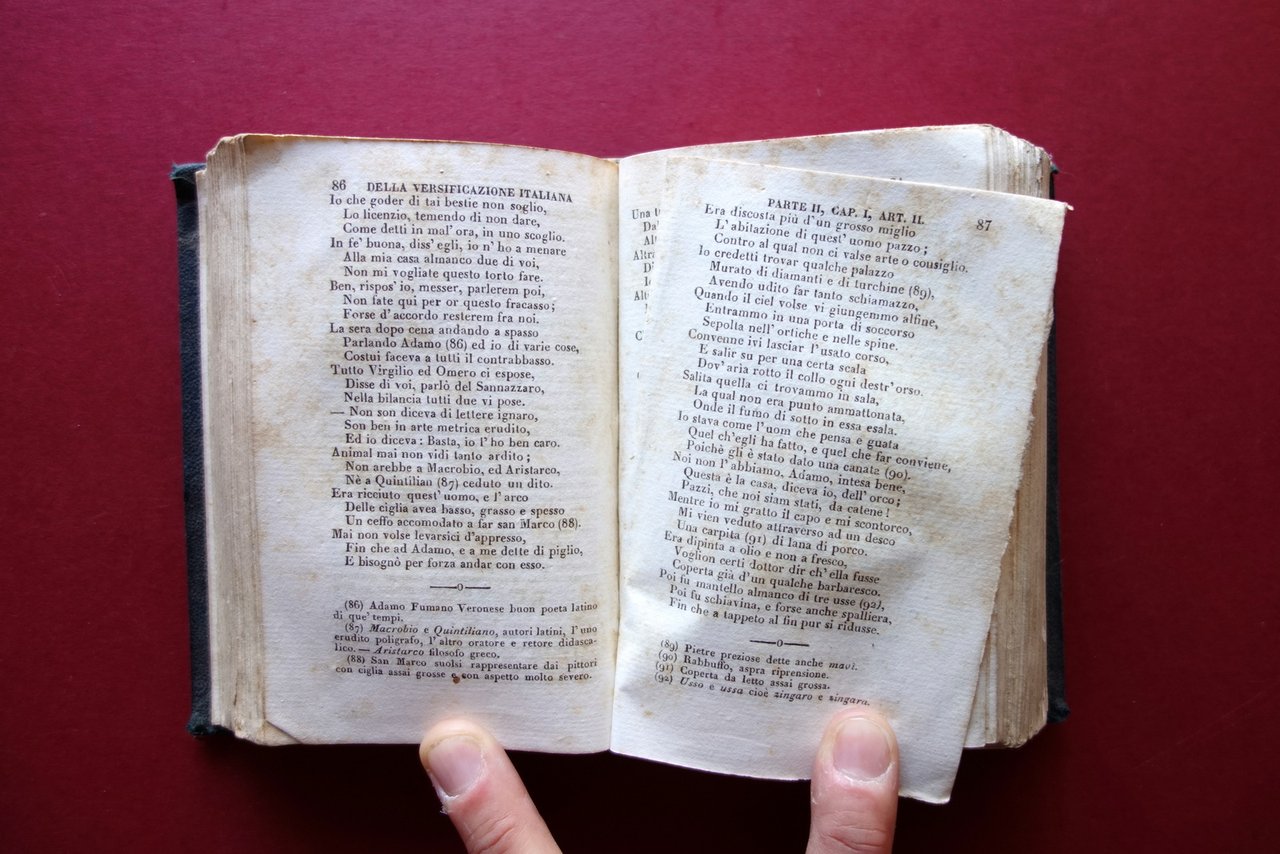 86 DELLA VERSIFICAZIONE ITALIANA
Io che goder di tai bestie non soglio,
Lo licenzio, temendo di non dare,
Come detti in mal' ora, in uno scoglio.
In fe' buona, diss' egli, io n' ho a menare
Alla mia casa almanco due di voi,
Non mi vogliate questo torto fare.
Ben, rispos' io, messer, parlerem poi,
Non fate qui per or questo fracasso;
Forse d'accordo resterem fra noi.
La sera dopo cena andando a spasso
Parlando Adamo (86) ed io di varie cose,
Costui faceva a tutti il contrabbasso.
Tutto Virgilio ed Omero ci espose,
Disse di voi, parlò del Sannazzaro,
Nella bilancia tutti due vi pose.
— Non son diceva di lettere ignaro,
Son ben in arte metrica erudito,
Ed io diceva: Basta, io l' ho ben caro.
Animal mai non vidi tanto ardito;
Non arebbe a Macrobio, ed Aristarco,
Nè a Quintilian (87) ceduto un dito.
Era ricciuto quest' uomo, e l' arco
Delle ciglia avea basso, grasso e spesso
Un ceffo accomodato a far san Marco (88).
Mai non volse levarsici d'appresso,
Fin che ad Adamo, e a me dette di piglio,
E bisognò per forza andar con esso.
(86) Adamo Fumano Veronese buon poeta latino
di que' tempi.
(87) Macrobio e Quintiliano, autori latini, l' uno
erudito poligrafo, l' altro oratore e retore didasca-
lico. — Aristarco filosofo greco.
(88) San Marco suolsi rappresentare dai pittori
con ciglia assai grosse e con aspetto molto severo.
PARTE II, CAP. I, ART. II. 87
Era discosta più d'un grosso miglio
L' abitazione di quest' uomo pazzo;
Contro al qual non ci valse arte o cousiglio.
Io credetti trovar qualche palazzo
Murato di diamanti e di turchine (89),
Avendo udito far tanto schiamazzo,
Quando il ciel volse vi giungemmo alfine,
Entrammo in una porta di soccorso
Sepolta nell' ortiche e nelle spine.
Convenne ivi lasciar l' usato corso,
E salir su per una certa scala
Dov' aria rotto il collo ogni destr' orso.
Salita quella ci trovammo in sala,
La qual non era punto ammattonata,
Onde il fumo di sotto in essa esala.
Io stava come l' uom che pensa e guata
Quel ch'egli ha fatto, e quel che far conviene,
Poichè gli è stato dato una canata (90).
Noi non l' abbiamo, Adamo, intesa bene,
Questa è la casa, diceva io, dell' orco;
Pazzi, che noi siam stati, da catene!
Mentre io mi gratto il capo e mi scontorco,
Mi vien veduto attraverso ad un desco
Una carpita (91) di lana di porco.
Era dipinta a olio e non a fresco,
Voglion certi dottor dir ch' ella fusse
Coperta già d'un qualche barbaresco.
Poi fu mantello almanco di tre usse (92),
Poi fu schiavina, e forse anche spalliera,
Fin che a tappeto al fin pur si ridusse.
(89) Pietre preziose dette anche mavì.
(90) Rabbuffo, aspra riprensione.
(91) Coperta da letto assai grossa.
(92) Usso e ussa cioè zingaro e zingara.